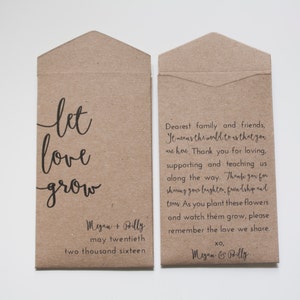 let
love
grow
Megan + Billy
may twentieth
two thousand sixteen
Dearest family and friends,
It means the world to us that you
are here. Thank you for loving,
supporting and teaching us
along the way. Thank you for
sharing your laughter, friendship and
love. As you plant these flowers
and watch them grow, please
remember the love we share
xo,
Megan & Billy